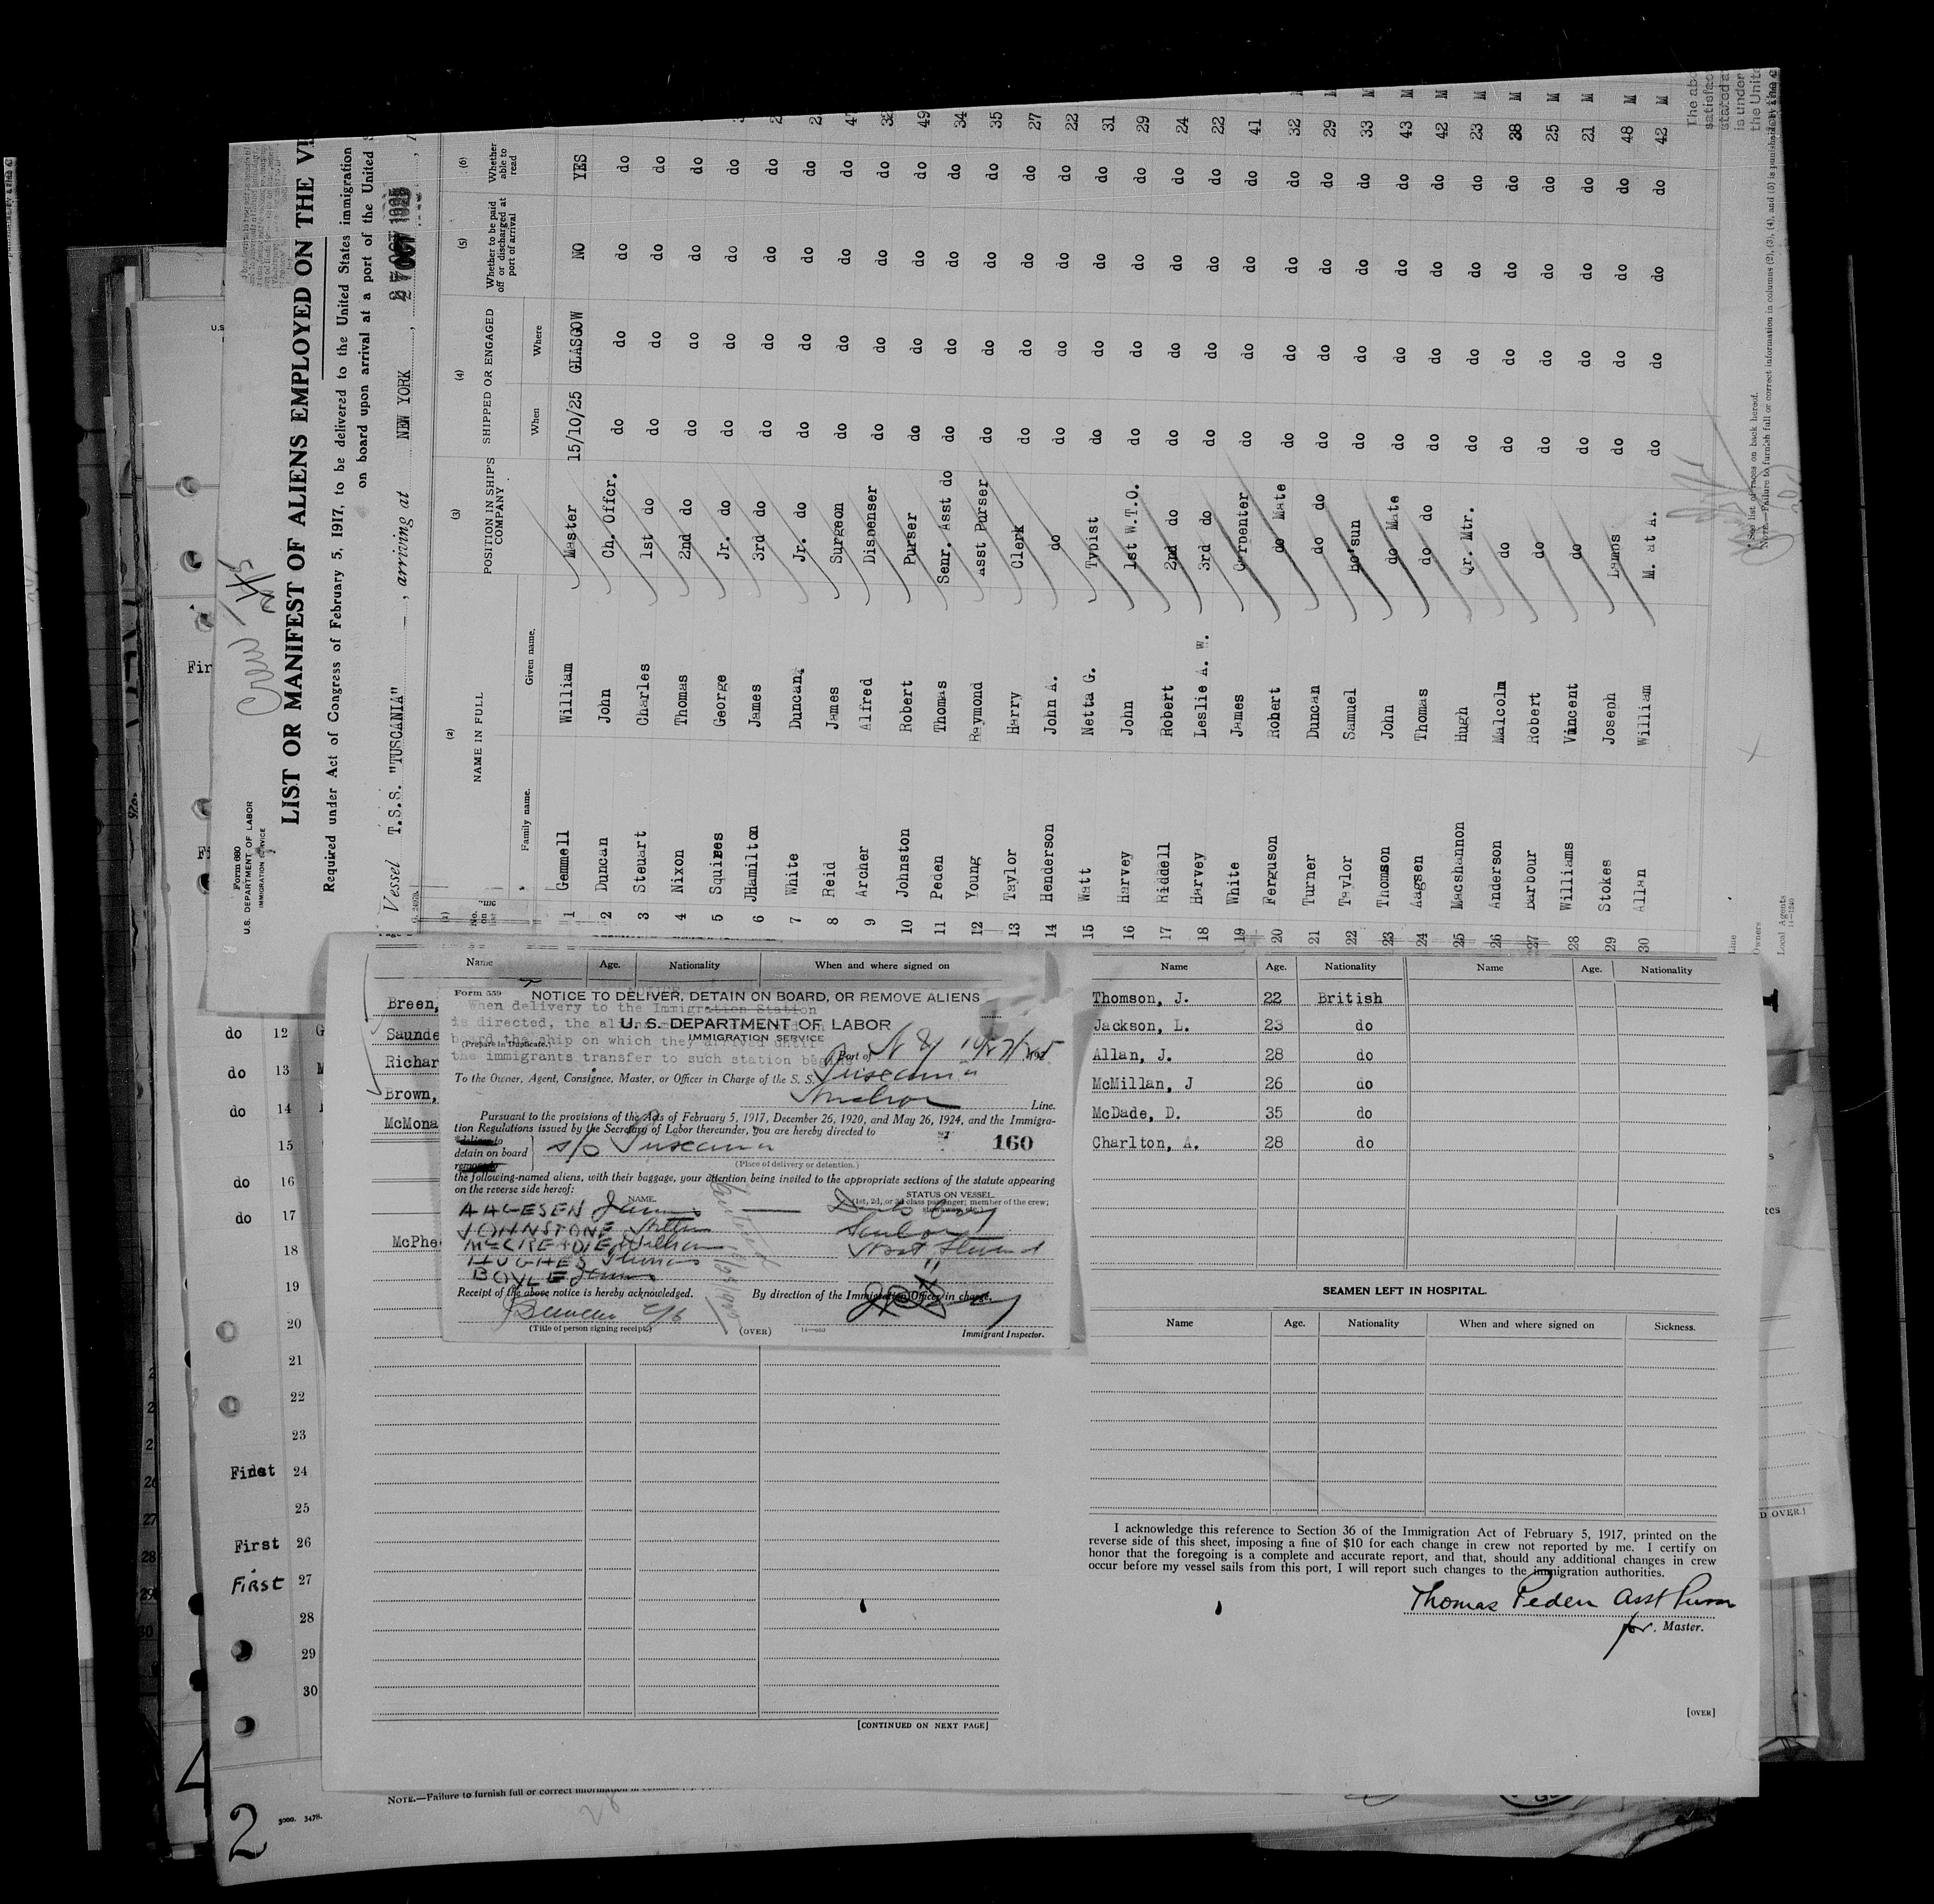 Form 680
U. S. DEPARTMENT OF LABOR
IMMIGRATION SERVICE
Crew
LIST OR MANIFEST OF ALIENS EMPLOYED ON THE
Required under Act of Congress of February 5, 1917, to be delivered to the United States immigration
on board upon arrival at a port of the United
Vessel T.S.S. "TUSCANIA", arriving at NEW YORK, 27 OCT 1925
(1) (2) (3) (4) (5) (6)
No. on list
NAME IN FULL
POSITION IN SHIP'S COMPANY
SHIPPED OR ENGAGED
Whether to be paid off or discharged at port of arrival
Whether able to read
Family name. Given name. When Where
1 Gemmell William Master 15/10/25 GLASGOW NO YES
2 Duncan John Ch. Offcr. do do do do
3 Steuart Charles 1st do do do do do
4 Nixon Thomas 2nd do do do do do
5 Squires George Jr. do do do do do
6 JHamilton James 3rd do do do do do
7 White Duncan Jr. do do do do do
8 Reid James Surgeon do do do do
9 Archer Alfred Dispenser do do do do
10 Johnston Robert Purser do do do do 49
11 Peden Thomas Senr. Asst do do do do do 34
12 Young Raymond Asst Purser do do do do 35
13 Taylor Harry Clerk do do do do 27
14 Henderson John A. do do do do do 22
15 Watt Netta G. Typist do do do do 31
16 Harvey John 1st W.T.O. do do do do 29
17 Riddell Robert 2nd do do do do do 24
18 Harvey Leslie A. W. 3rd do do do do do 22
19 White James Carpenter do do do do 41
20 Ferguson Robert do Mate do do do do 32
21 Turner Duncan do do do do do do 29
22 Taylor Samuel Bo'sun do do do do 33 M
23 Thomson John do Mate do do do do 43 M
24 Aagsen Thomas do do do do do do 42 M
25 Macshannon Hugh Qr. Mtr. do do do do 23 M
26 Anderson Malcolm do do do do do 38 M
27 Barbour Robert do do do do do 25 M
28 Williams Vincent do do do do do 21 M
29 Stokes Joseph Lamps do do do do 48 M
30 Allan William M. at A. do do do do 42 M
* See list of races on back hereof.
NOTE.—Failure to furnish full or correct information in columns (2), (3), (4), and (5) is punishable
Line
Owners
Local Agents
Name Age. Nationality When and where signed on
Breen,
Saunde
Richar
Brown,
McMona
McPhe
Form 559
NOTICE TO DELIVER, DETAIN ON BOARD, OR REMOVE ALIENS
When delivery to the Immigration Station
is directed, the aliens
board the ship on which they arrived until
the immigrants transfer to such station
U. S. DEPARTMENT OF LABOR
IMMIGRATION SERVICE
(Prepare in Duplicate)
Port of N Y 10/27/1925
To the Owner, Agent, Consignee, Master, or Officer in Charge of the S. S. Tuscania
Anchor Line.
Pursuant to the provisions of the Acts of February 5, 1917, December 26, 1920, and May 26, 1924, and the Immigra-
tion Regulations issued by the Secretary of Labor thereunder, you are hereby directed to
deliver to
detain on board
remove to
s/s Tuscania 160
(Place of delivery or detention.)
the following-named aliens, with their baggage, your attention being invited to the appropriate sections of the statute appearing
on the reverse side hereof:
NAME. STATUS ON VESSEL
(1st, 2d, or 3d class passenger; member of the crew;
AAGESEN
JOHNSTONE
McCREADIE, William
HUGHES Thomas
BOYLE James
Receipt of the above notice is hereby acknowledged.
By direction of the Immigration Officer in charge.
(Title of person signing receipt.)
(OVER)
Immigrant Inspector.
Name Age. Nationality Name Age. Nationality
Thomson, J. 22 British
Jackson, L. 23 do
Allan, J. 28 do
McMillan, J 26 do
McDade, D. 35 do
Charlton, A. 28 do
SEAMEN LEFT IN HOSPITAL.
Name Age. Nationality When and where signed on Sickness.
I acknowledge this reference to Section 36 of the Immigration Act of February 5, 1917, printed on the
reverse side of this sheet, imposing a fine of $10 for each change in crew not reported by me. I certify on
honor that the foregoing is a complete and accurate report, and that, should any additional changes in crew
occur before my vessel sails from this port, I will report such changes to the immigration authorities.
Thomas Peden Asst Purser
for. Master.
[CONTINUED ON NEXT PAGE]
[OVER]
do 12
do 13
do 14
15
do 16
do 17
18
19
20
21
22
23
First 24
25
First 26
First 27
28
29
30
NOTE.—Failure to furnish full or correct information in
2
5000. 3478.